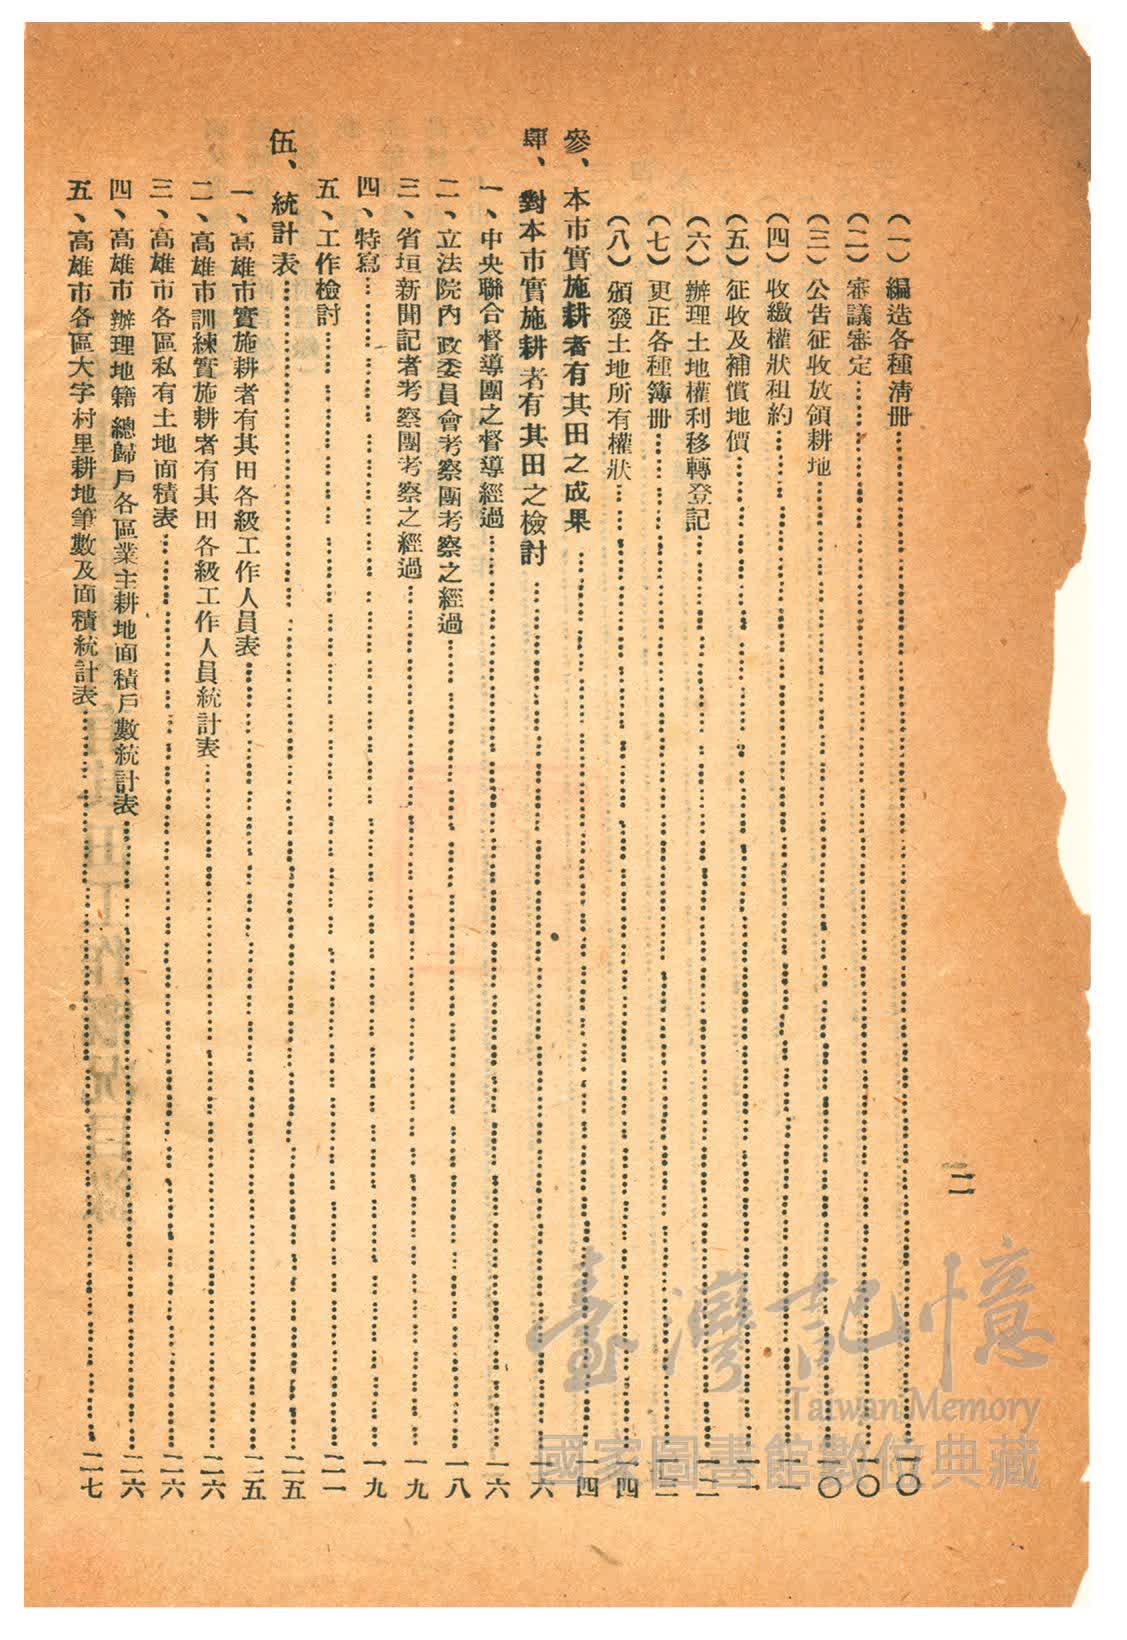 二
（一）編造各種清冊……一〇
（二）審議審定……一〇
（三）公告征收放領耕地……一〇
（四）收繳權狀租約……一一
（五）征收及補償地價……一一
（六）辦理土地權利移轉登記……一二
（七）更正各種簿冊……一三
（八）頒發土地所有權狀……一四
參、本市實施耕者有其田之成果……一四
肆、對本市實施耕者有其田之檢討……一六
一、中央聯合督導團之督導經過……一六
二、立法院內政委員會考察團考察之經過……一八
三、省垣新聞記者考察團考察之經過……一九
四、特寫……一九
五、工作檢討……二一
伍、統計表……二五
一、高雄市實施耕者有其田各級工作人員表……二五
二、高雄市訓練實施耕者有其田各級工作人員統計表……二六
三、高雄市各區私有土地面積表……二六
四、高雄市辦理地籍總歸戶各區業主耕地面積戶數統計表……二六
五、高雄市各區大字村里耕地筆數及面積統計表……二七
臺灣記憶
Taiwan Memory
國家圖書館數位典藏